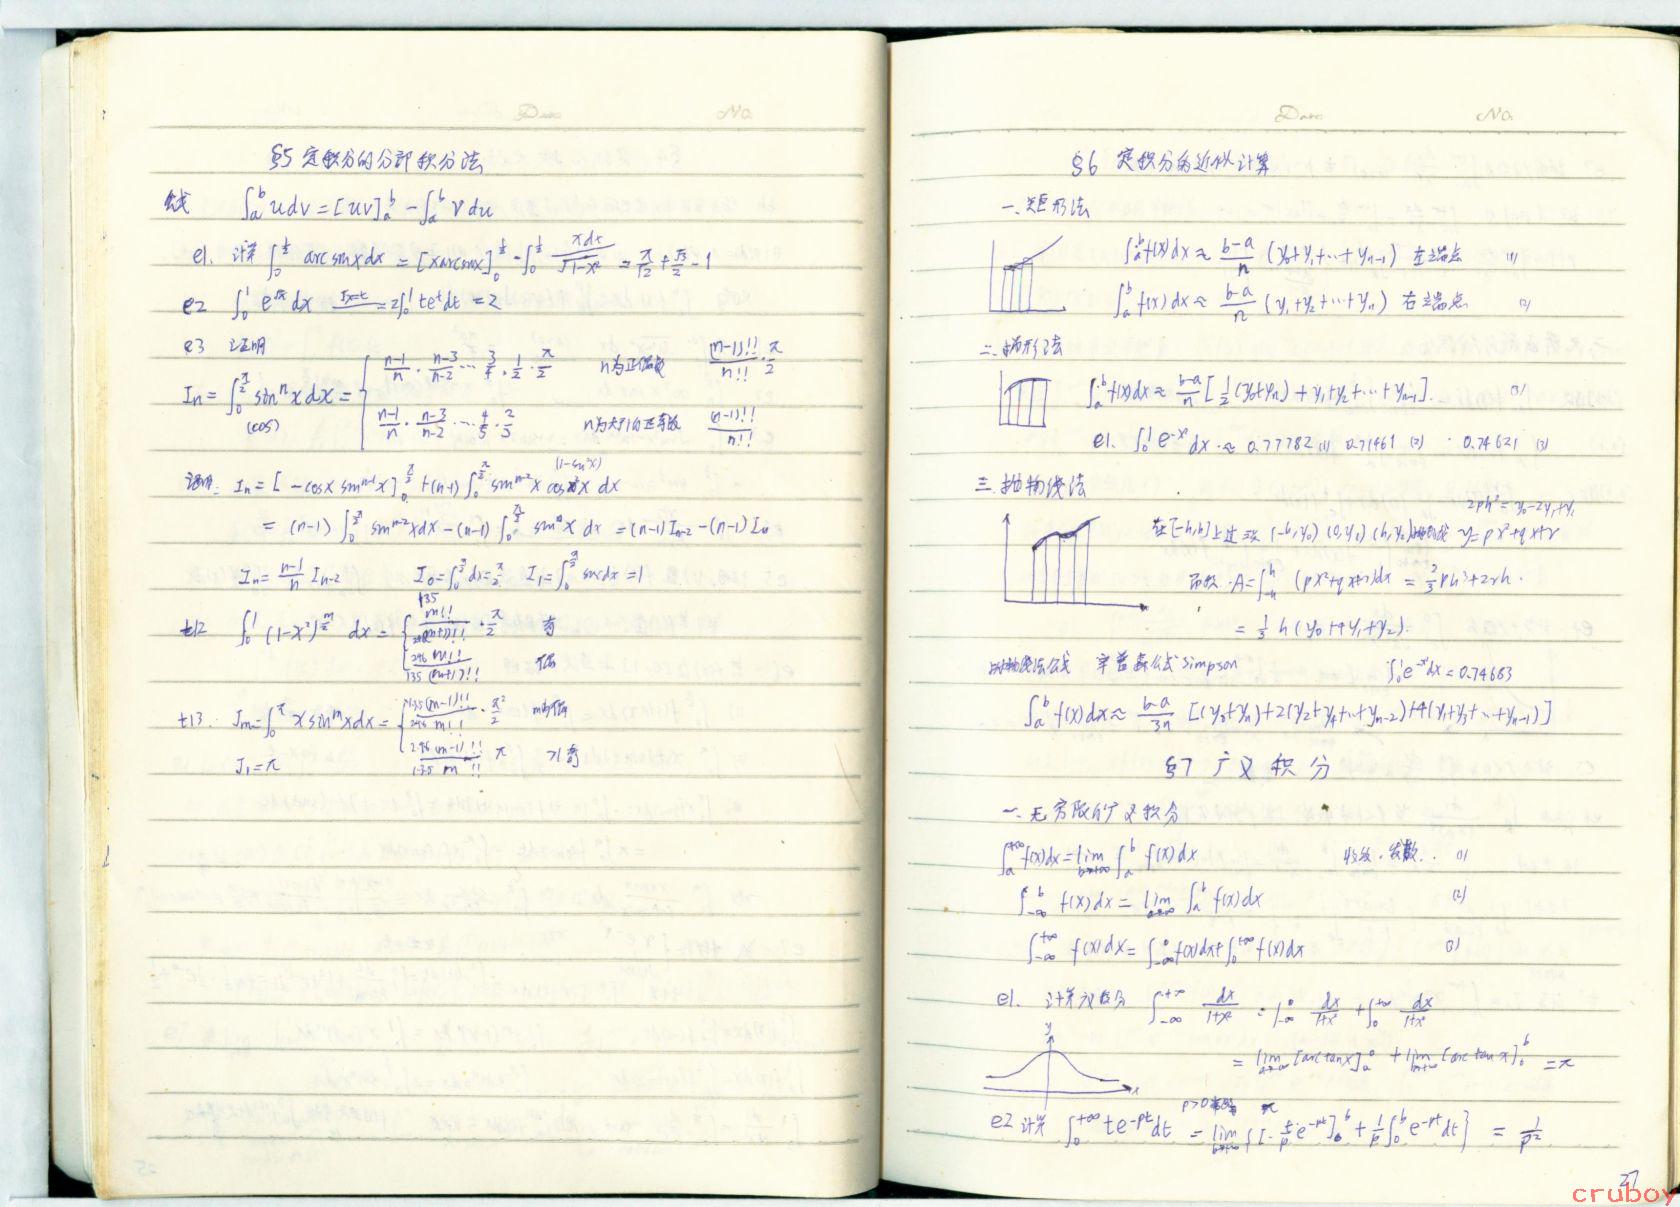 Date No.
§5 定积分的分部积分法
公式 ∫_a^b udv = [uv]_a^b - ∫_a^b vdu
e1. 计算 ∫_0^{1/2} arcsinxdx = [xarcsinx]_0^{1/2} - ∫_0^{1/2} xdx/√(1-x²) = π/12 + √3/2 - 1
e2 ∫_0^1 e^{√x} dx =(√x=t)= 2∫_0^1 te^t dt = 2
e3 证明
I_n = ∫_0^{π/2} sin^n xdx = { (n-1)/n · (n-3)/(n-2) ··· 3/4 · 1/2 · π/2 n为正偶数 (n-1)!!/n!! · π/2
(cos) (n-1)/n · (n-3)/(n-2) ··· 4/5 · 2/3 n为大于1的正奇数 (n-1)!!/n!!
证明: I_n = [-cosx sin^{n-1}x]_0^{π/2} + (n-1) ∫_0^{π/2} sin^{n-2}x cos²x dx (1-sin²x)
= (n-1) ∫_0^{π/2} sin^{n-2}xdx - (n-1) ∫_0^{π/2} sin^n x dx = (n-1) I_{n-2} - (n-1) I_n
I_n = (n-1)/n I_{n-2} I_0 = ∫_0^{π/2} dx = π/2 I_1 = ∫_0^{π/2} sinxdx = 1
t12 ∫_0^1 (1-x²)^{m/2} dx = { 135 m!!/246 (m+1)!! · π/2 奇
246 m!!/135 (m+1)!! 偶
t13. J_m = ∫_0^π xsin^m xdx = { 135 (m-1)!!/246 m!! · π²/2 m为偶
J_1 = π 246 (m-1)!!/135 m!! π 奇
Date No.
§6 定积分的近似计算
一. 矩形法
∫_a^b f(x)dx ≈ (b-a)/n (y_0+y_1+···+y_{n-1}) 左端点 (1)
∫_a^b f(x)dx ≈ (b-a)/n (y_1+y_2+···+y_n) 右端点 (2)
二. 梯形法
∫_a^b f(x)dx ≈ (b-a)/n [1/2 (y_0+y_n) + y_1+y_2+···+y_{n-1}]. (3)
e1. ∫_0^1 e^{-x²} dx ≈ 0.77782 (1) 0.71461 (2) 0.74621 (3)
三. 抛物线法
2ph² = y_0-2y_1+y_2
在[-h,h]上过 (-h,y_0) (0,y_1) (h,y_2)抛物线 y=px²+qx+r
面积 A = ∫_{-h}^h (px²+qx+r)dx = 2/3 ph³+2rh.
= 1/3 h (y_0+4y_1+y_2).
抛物线法公式 辛普森公式 Simpson ∫_0^1 e^{-x²}dx = 0.74683
∫_a^b f(x)dx ≈ (b-a)/3n [(y_0+y_n)+2(y_2+y_4+···+y_{n-2})+4(y_1+y_3+···+y_{n-1})]
§7 广义积分
一. 无穷限的广义积分
∫_a^{+∞} f(x)dx = lim_{b→+∞} ∫_a^b f(x)dx 收敛. 发散. (1)
∫_{-∞}^b f(x)dx = lim_{a→-∞} ∫_a^b f(x)dx (2)
∫_{-∞}^{+∞} f(x)dx = ∫_{-∞}^0 f(x)dx + ∫_0^{+∞} f(x)dx (3)
e1. 计算 积分 ∫_{-∞}^{+∞} dx/(1+x²) = ∫_{-∞}^0 dx/(1+x²) + ∫_0^{+∞} dx/(1+x²)
y x
= lim_{a→-∞} [arctanx]_a^0 + lim_{b→+∞} [arctanx]_0^b = π
p>0
e2 计算 ∫_0^{+∞} te^{-pt}dt = lim_{b→+∞} {[-t/p e^{-pt}]_0^b + 1/p ∫_0^b e^{-pt}dt} = 1/p²
27
cruboy